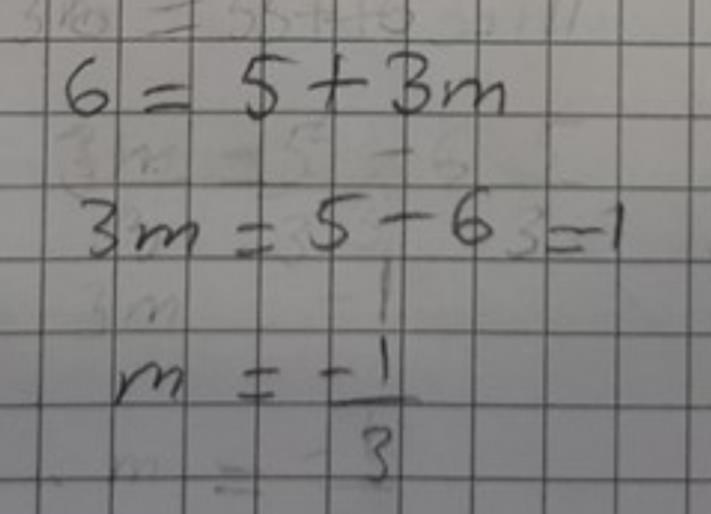 6 = 5 + 3m
3m = 5 - 6 = -1
m = -1/3